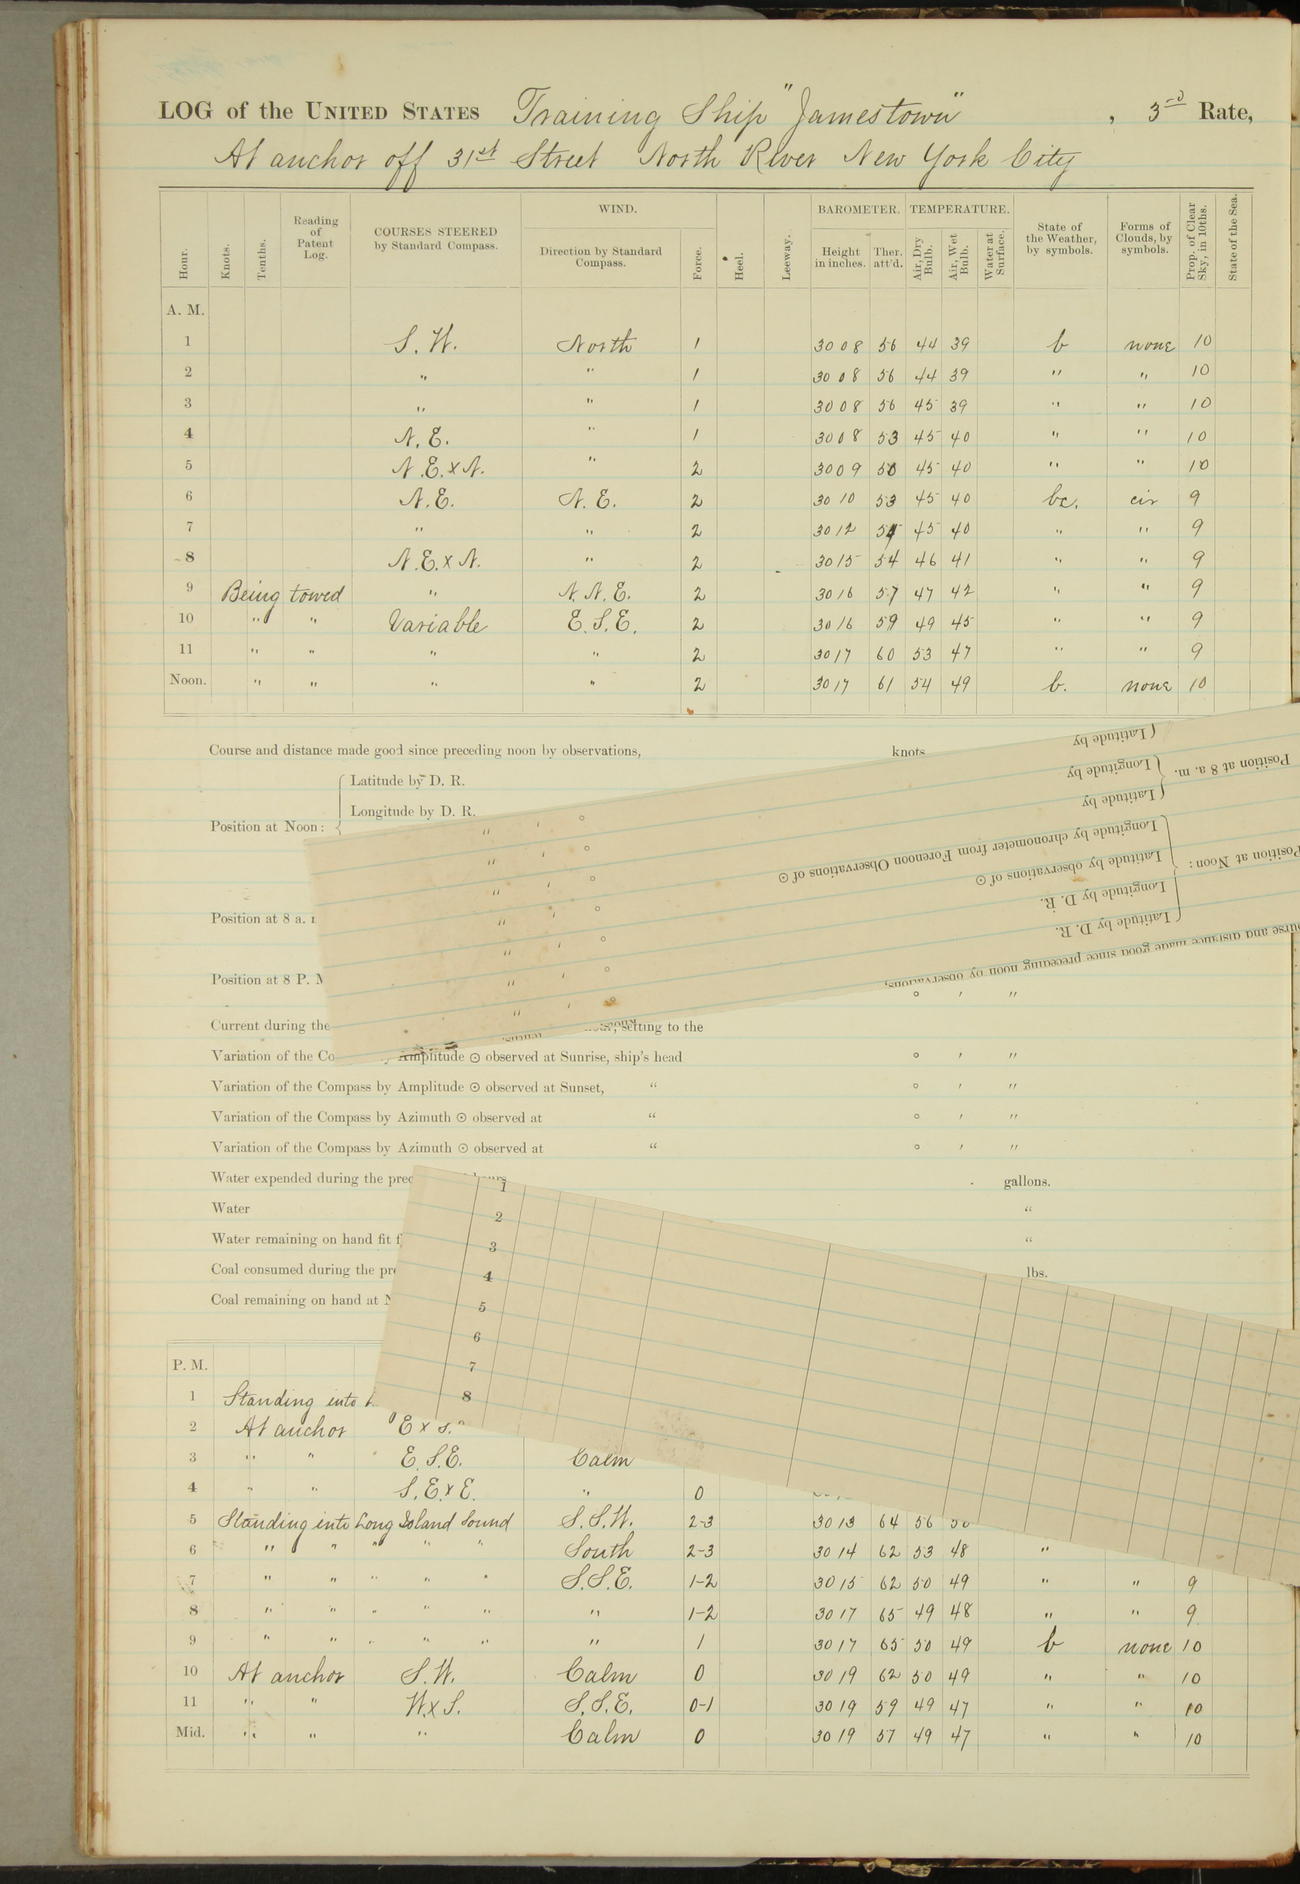 LOG of the UNITED STATES Training Ship "Jamestown", 3rd Rate,
At anchor off 31st Street North River New York City
Hour. Knots. Tenths. Reading of Patent Log. COURSES STEERED by Standard Compass. WIND. Direction by Standard Compass. Force. Heel. Leeway. BAROMETER. Height in inches. Ther. att'd. TEMPERATURE. Air, Dry Bulb. Air, Wet Bulb. Water at Surface. State of the Weather, by symbols. Forms of Clouds, by symbols. Prop. of Clear Sky, in 10ths. State of the Sea.
A. M.
1 S. W. North 1 30 08 56 44 39 b none 10
2 " " 1 30 08 56 44 39 " " 10
3 " " 1 30 08 56 45 39 " " 10
4 N. E. " 1 30 08 53 45 40 " " 10
5 N. E. x N. " 2 30 09 50 45 40 " " 10
6 N. E. N. E. 2 30 10 53 45 40 bc. cir 9
7 " " 2 30 12 54 45 40 " " 9
8 N. E. x N. " 2 30 15 54 46 41 " " 9
9 Being towed " N. N. E. 2 30 16 57 47 42 " " 9
10 " " Variable E. S. E. 2 30 16 59 49 45 " " 9
11 " " " " 2 30 17 60 53 47 " " 9
Noon. " " " " 2 30 17 61 54 49 b. none 10
Course and distance made good since preceding noon by observations, knots
Latitude by D. R.
Longitude by D. R.
Position at Noon:
Position at 8 a.
Position at 8 P. M
Latitude by
Longitude by
Position at 8 a. m.
Latitude by
Longitude by chronometer from Forenoon Observations of ☉
Latitude by observations of ☉
Position at Noon:
Longitude by D. R.
Latitude by D. R.
urse and distance made good since preceding noon by observations,
Current during the setting to the
Variation of the Co Amplitude ☉ observed at Sunrise, ship's head ° ′ ″
Variation of the Compass by Amplitude ☉ observed at Sunset, " ° ′ ″
Variation of the Compass by Azimuth ☉ observed at " ° ′ ″
Variation of the Compass by Azimuth ☉ observed at " ° ′ ″
Water expended during the prec gallons.
Water "
Water remaining on hand fit f "
Coal consumed during the pre lbs.
Coal remaining on hand at N
1
2
3
4
5
6
7
8
P. M.
1 Standing into
2 At anchor E x S.
3 " " E. S. E. Calm
4 " " S. E. x E. " 0
5 Standing into Long Island Sound S. S. W. 2-3 30 13 64 56 50
6 " " " " " South 2-3 30 14 62 53 48 "
7 " " " " " S. S. E. 1-2 30 15 62 50 49 " " 9
8 " " " " " " 1-2 30 17 65 49 48 " " 9
9 " " " " " " 1 30 17 65 50 49 b none 10
10 At anchor S. W. Calm 0 30 19 62 50 49 " " 10
11 " " W. x S. S. S. E. 0-1 30 19 59 49 47 " " 10
Mid. " " " Calm 0 30 19 57 49 47 " " 10